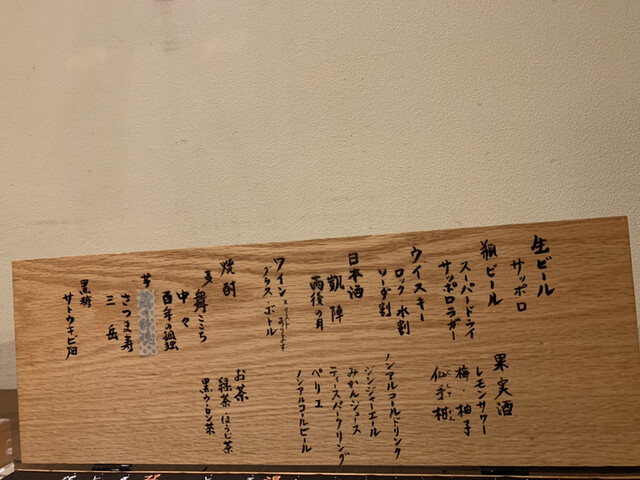 生ビール
サッポロ
瓶ビール
スーパードライ
サッポロラガー
ウイスキー
ロック 水割
ソーダ割
日本酒
凱陣
雨後の月
ワイン
グラス・ボトル
焼酎
麦
舞ここち
中々
百年の孤独
芋
さつま寿
三岳
黒糖
サトウキビ畑
果実酒
レモンサワー
梅 柚子
仏手柑
ノンアルコールドリンク
ジンジャーエール
みかんジュース
ティースパークリング
ペリエ
ノンアルコールビール
お茶
緑茶 ほうじ茶
黒ウーロン茶